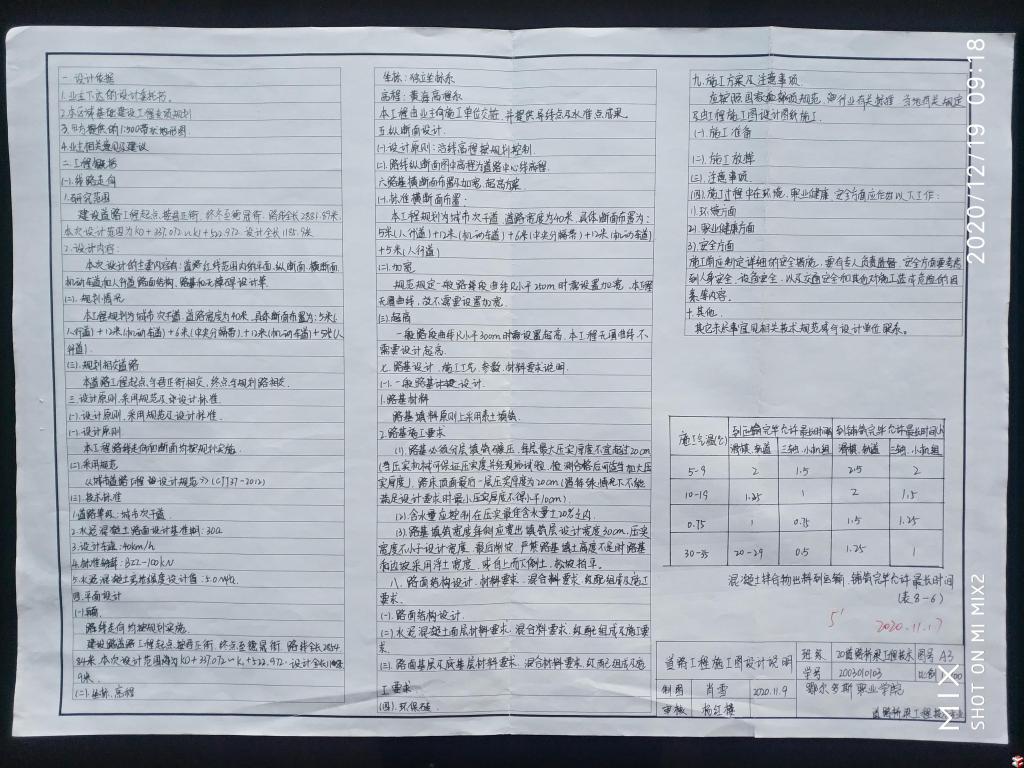 一 设计依据
1.业主下达的设计委托书。
3.甲方提供的1:500带状地形图.
4.业主相关意见及建议
二.工程概况
(一).线路走向
1.研究范围
本次设计范围为K0+337.072~K1+522.972.设计全长1185.9米
2.设计内容:
本次设计的主要内容有:道路红线范围内的平面.纵断面.横断面.
机动车道和人行道路面结构.路基和无障碍设计等.
(二).规划情况
本工程规划为城市次干道.道路宽度为40米.具体断面布置为:5米(
人行道)+12米(机动车道)+6米(中央分隔带)+12米(机动车道)+5米(人
行道).
(三).规划相交道路
三.设计原则.采用规范及设计标准
(一).设计原则.采用规范及设计标准.
(一).设计原则
本工程路线走向和断面均按规划实施.
(二).采用规范
《城市道路工程设计规范》(CJJ37-2012)
(三).技术标准
1.道路等级:城市次干道.
2.水泥混凝土路面设计基准期:30a
3.设计车速:40km/h
4.标准轴载:BZZ-100kN
5.水泥混凝土弯拉强度设计值:5.0MPa
四.平面设计
路线走向均按规划实施.
84米.本次设计范围为K0+337.072~K1+522.972.设计全长1185.
9米.
(二).坐标.高程
坐标:独立坐标系
高程:黄海高程系
本工程由业主向施工单位交桩.并提供导线点及水准点成果.
五.纵断面设计.
(一).设计原则:沿线高程按规划控制.
(二).路线纵断面图中高程为道路中心线高程.
六.路基横断面布置及加宽.超高方案.
(一).标准横断面布置:
本工程规划为城市次干道.道路宽度为40米.具体断面布置为:
5米(人行道)+12米(机动车道)+6米(中央分隔带)+12米(机动车道)
+5米(人行道)
(二).加宽.
规范规定一般路段曲线R小于250m时需设置加宽.本工程
无圆曲线.故不需要设置加宽.
(三).超高
一般路段曲线R小于300m时需设置超高.本工程无圆曲线.不
需要设计超高.
七.路基设计.施工工艺.参数.材料要求说明.
(一).一般路基设计.
1.路基材料
路基填料原则上采用素土填筑.
2.路基施工要求
(1).路基必须分层填筑碾压.每层最大压实厚度不宜超过20cm
(当压实机械可保证压实度并经现场试验.检测合格后可适当加大压
实厚度).路床顶面最后一层压实厚度为20cm(当特殊情况下不能
满足设计要求时最小压实厚度不得小于10cm).
(2).含水量应控制在压实最佳含水量±20%之内.
(3).路基填筑宽度每侧应宽出填筑层设计宽度30cm.压实
宽度不小于设计宽度.最后削坡.严禁路基填土高度不足时路基
八.路面结构设计.材料要求.混合料要求.级配组成及施工
要求.
(一).路面结构设计.
(二).水泥混凝土面层材料要求.混合料要求.级配组成及施工要
求.
(三).路面基层及底基层材料要求.混合料要求.级配组成及施
工要求
(四).环保砖.
九.施工方案及注意事项.
应按照国家各项规范.和行业有关标准.当地有关规定
及由工程施工图设计图纸施工.
(一).施工准备
(二).施工放样
(三).注意事项
(四).施工过程中在环境.职业健康.安全方面应作如以下工作:
1).环境方面
2).职业健康方面
3).安全方面
施工前应制定详细的安全措施.要有专人负责监督.安全方面要考虑
到人身安全.设备安全.以及交通安全和其他对施工造成危险的因
素等内容.
十.其他.
其它未尽事宜见相关技术规范或与设计单位联系.
施工气温(℃) 到运输完毕允许最长时间h 到铺筑完毕允许最长时间h
滑模.轨道 三轴.小机组 滑模.轨道 三轴.小机组
5-9 2 1.5 2.5 2
10-19 1.25 1 2 1.5
0.75 1 0.75 1.5 1.25
30-35 20-29 0.5 1.25 1
混凝土拌合物出料到运输.铺筑完毕允许最长时间
(表8-6)
2020.11.17
道路工程施工图设计说明 班级 20道路桥梁工程技术 图号 A3
学号 2003010103 比例
制图 肖雪 2020.11.9 鄂尔多斯职业学院
审核 杨红樱
2020/12/19 09:18
MIX SHOT ON MI MIX2